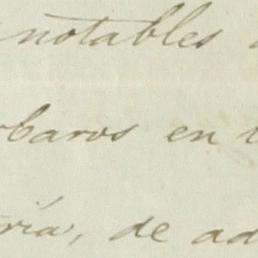 notables
baros en
ria, de ad